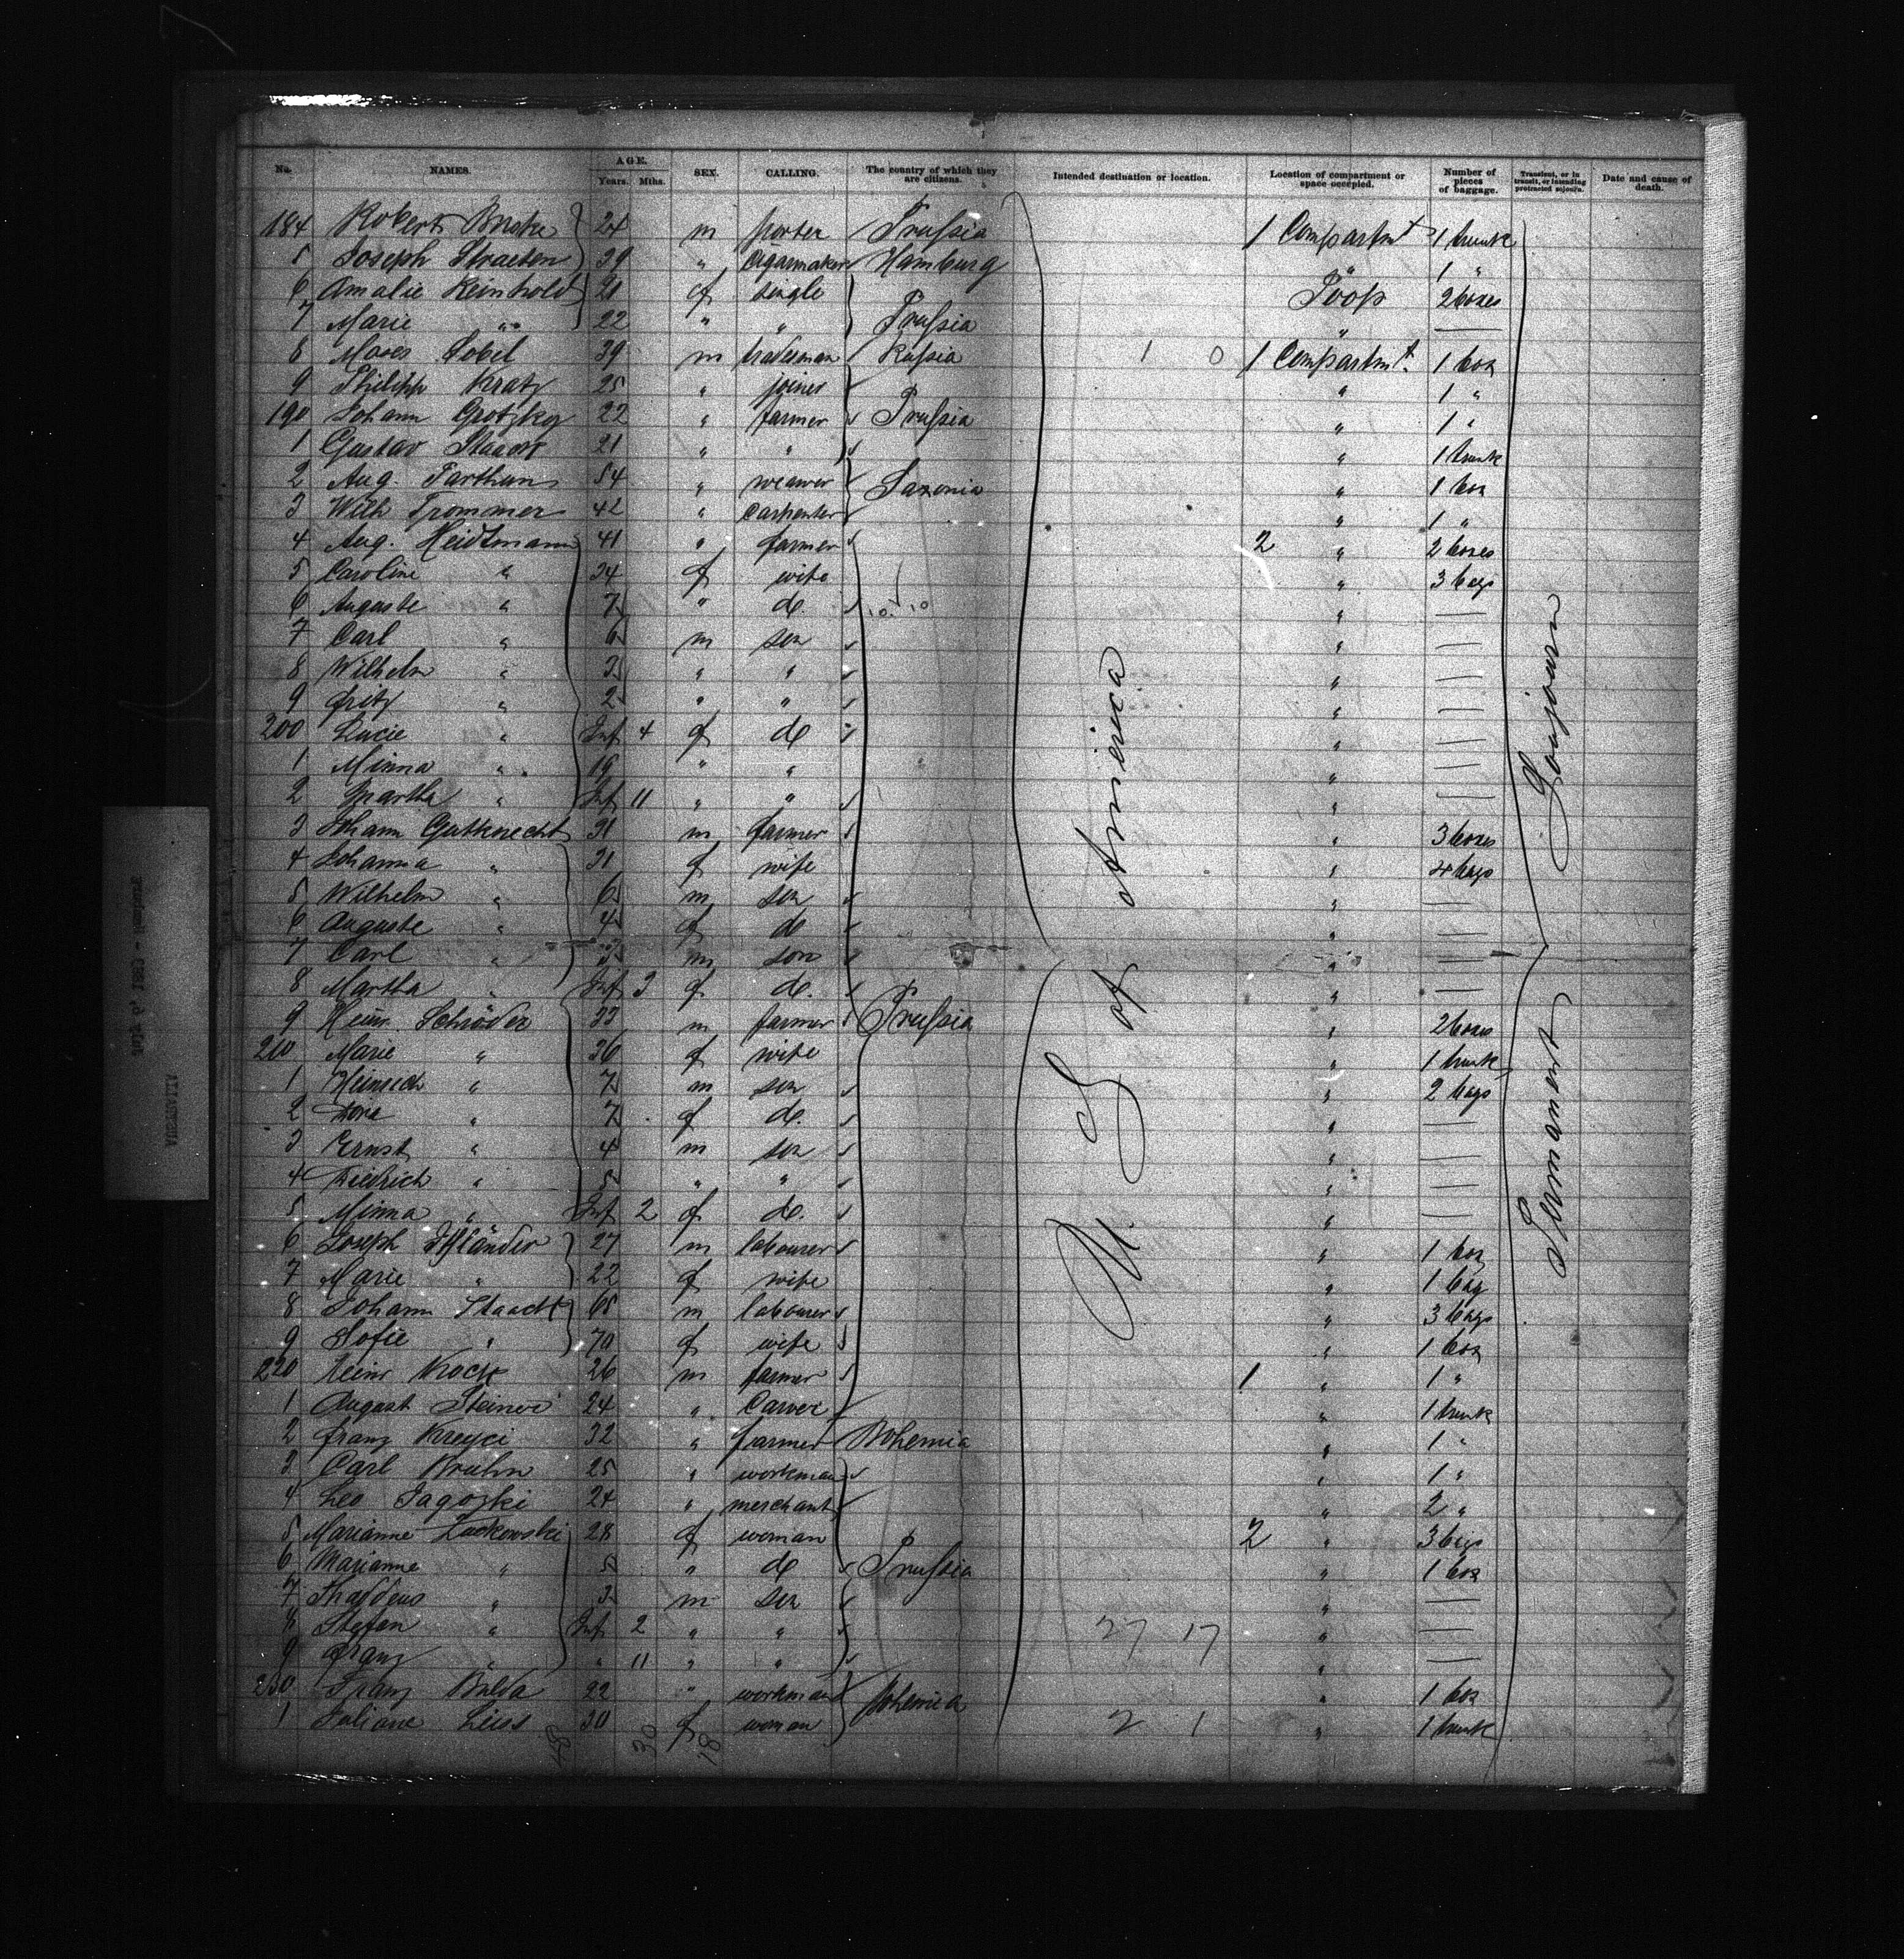 No. NAMES. AGE. Years. Mths. SEX. CALLING. The country of which they are citizens. Intended destination or location. Location of compartment or space occupied. Number of pieces of baggage. Transient, or in transit, or intending protracted sojourn. Date and cause of death.
184 Robert 24 m porter Prussia 1 Compartmt 1 trunk
5 Joseph Straeten 39 " Cigarmaker Hamburg " 1 "
6 Amalie Reinhold 21 f single Poop 2 boxes
7 Marie " 22 " " Prussia " —
8 Moses Sobel 39 m tradesman Russia 1 0 1 Compartmt. 1 box
9 Philipp Kratz 25 " joiner " 1 "
190 Johann Grotzky 22 " farmer Prussia " 1 "
1 Gustav Staack 21 " " " 1 trunk
2 Aug. Parthum 54 " weawer Saxonia " 1 box
3 Wilh Trommer 42 " Carpenter " 1 "
4 Aug. Heidtmann 41 " farmer 2 " 2 boxes
5 Caroline " 34 f wife " 3 bags
6 Auguste " 7 " do. " —
7 Carl " 6 m son " —
8 Wilhelm " 3 " " " —
9 Fritz " 2 " " " —
200 Lucie " Inf 4 f do " —
1 Minna " 19 " " " —
2 Martha " Inf 11 " " " —
3 Johann Gutknecht 31 m farmer " 3 boxes
4 Johanna " 31 f wife " 4 bags
5 Wilhelm " 6 m son " —
6 Auguste " 4 f do " —
7 Carl " 3 m son " —
8 Martha " Inf 3 f do. " —
9 Heinr. Schröder 33 m farmer Prussia " 2 boxes
210 Marie " 36 f wife " 1 trunk
1 Heinrich " 7 m son " 2 bags
2 Dora " 7 f do. " —
3 Ernst " 4 m son " —
4 Diedrich " 5 " " " —
5 Minna " Inf 2 f do. " —
6 Joseph 27 m labourer " 1 box
7 Marie " 22 f wife " 1 bag
8 Johann Staack 68 m labourer " 3 bags
9 Sofie " 70 f wife " 1 box
220 Heinr Kock 26 m farmer 1 " 1 "
1 August Steiner 24 " Carver " 1 trunk
2 Franz Kreyci 32 " farmer Bohemia " 1 "
3 Carl Bruhn 25 " workman " 1 "
4 Leo Jagozki 24 " merchant " 2 "
5 Marianne Zuckowski 28 f woman 2 " 3 bags
6 Marianne " 5 " do Prussia " 1 box
7 Thaddeus " 3 m son " —
8 Stefan " Inf 2 " " 27 17 " —
9 Franz " " 11 " " " —
230 Franz 22 " workman Bohemia " 1 box
1 Juliane Leiss 30 f woman 2 1 " 1 trunk
U. S. of America
Permanent Soujourn
30 18